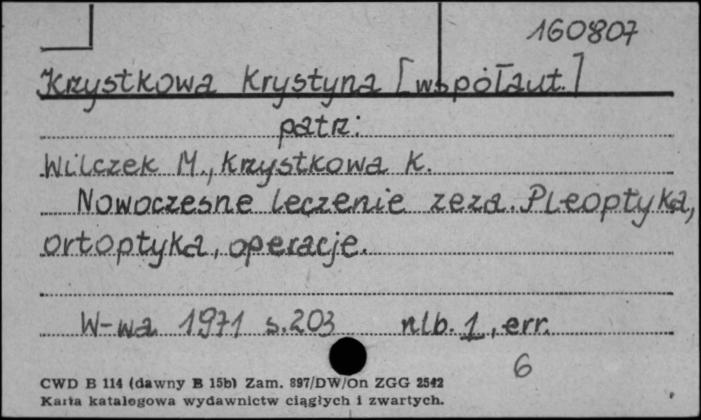 160807
Krzystkowa Krystyna [współaut.]
patrz:
Wilczek M., Krzystkowa K.
Nowoczesne leczenie zeza. Pleoptyka,
ortoptyka, operacje.
W-wa 1971 s. 203 nlb. 1, err.
6
CWD B 114 (dawny B 15b) Zam. 897/DW/On ZGG 2542
Karta katalogowa wydawnictw ciągłych i zwartych.